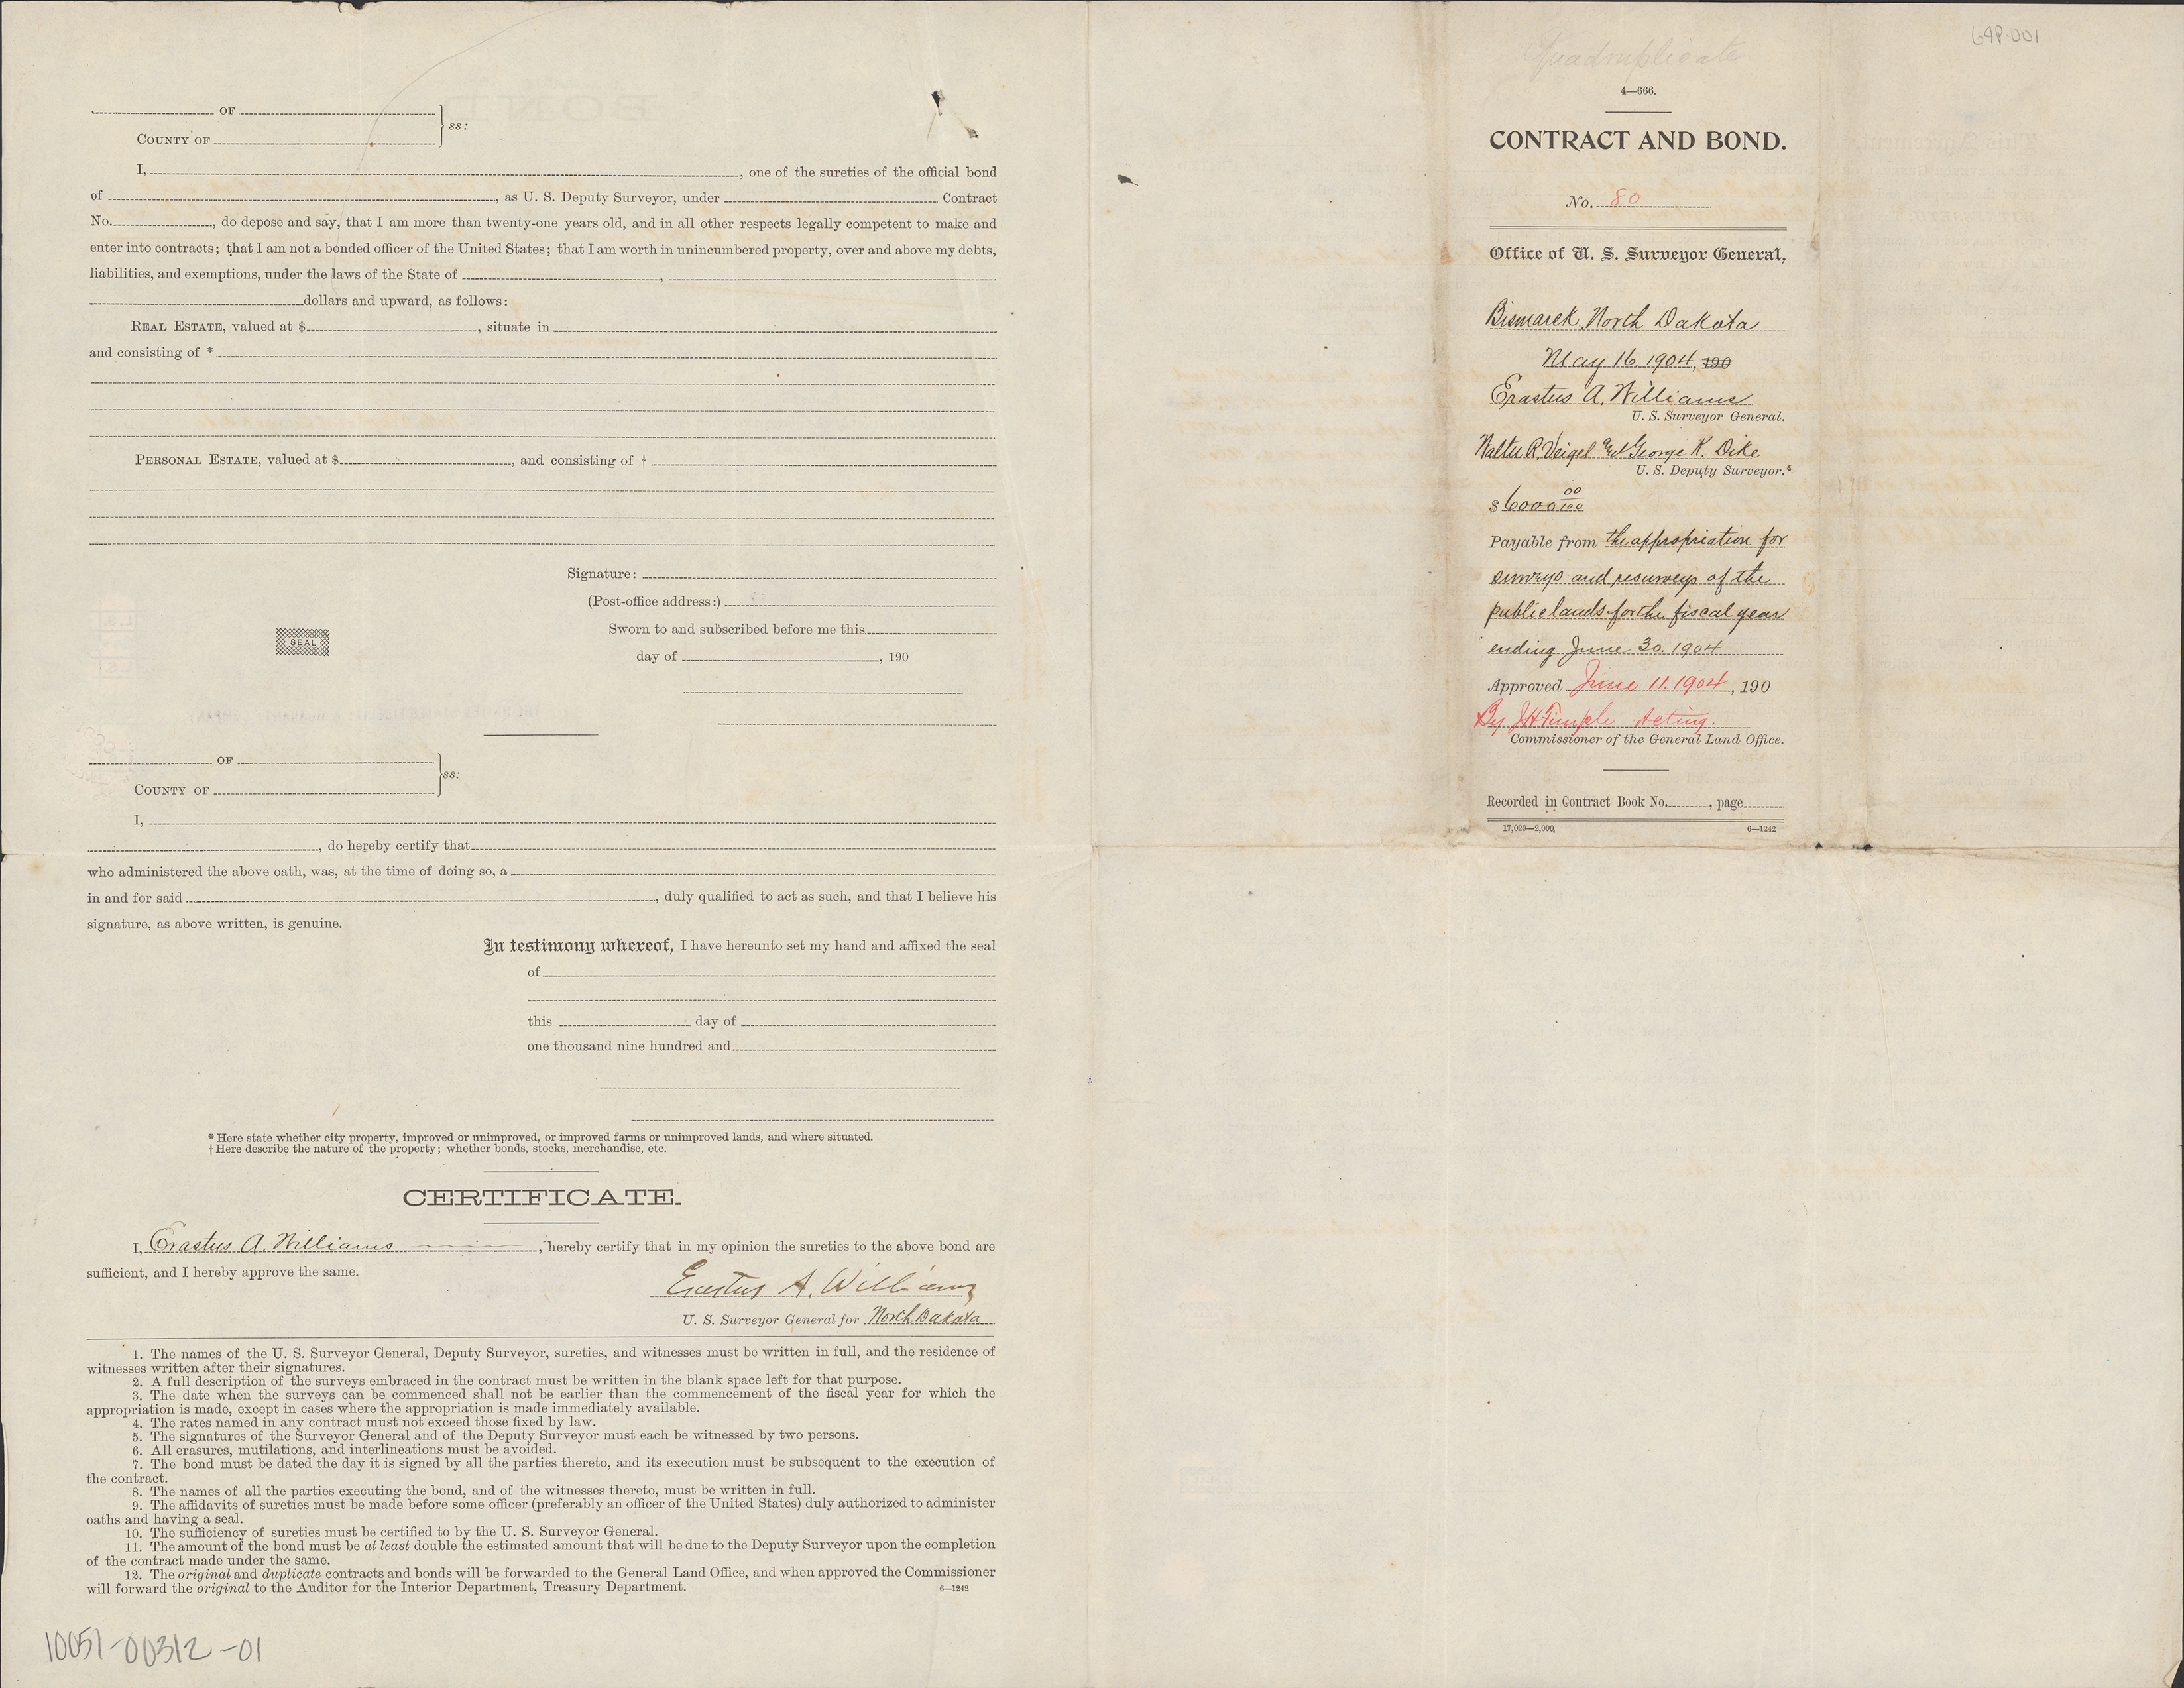 OF
COUNTY OF ss:
I, , one of the sureties of the official bond
of , as U. S. Deputy Surveyor, under Contract
No. , do depose and say, that I am more than twenty-one years old, and in all other respects legally competent to make and
enter into contracts; that I am not a bonded officer of the United States; that I am worth in unincumbered property, over and above my debts,
liabilities, and exemptions, under the laws of the State of ,
dollars and upward, as follows:
REAL ESTATE, valued at $ , situate in
and consisting of *
PERSONAL ESTATE, valued at $ , and consisting of †
Signature:
(Post-office address:)
Sworn to and subscribed before me this
SEAL
day of , 190
OF
COUNTY OF ss:
I,
, do hereby certify that
who administered the above oath, was, at the time of doing so, a
in and for said , duly qualified to act as such, and that I believe his
signature, as above written, is genuine.
In testimony whereof, I have hereunto set my hand and affixed the seal
of
this day of
one thousand nine hundred and
* Here state whether city property, improved or unimproved, or improved farms or unimproved lands, and where situated.
† Here describe the nature of the property; whether bonds, stocks, merchandise, etc.
CERTIFICATE.
I, Erastus A. Williams, hereby certify that in my opinion the sureties to the above bond are
sufficient, and I hereby approve the same.
Erastus A. Williams
U. S. Surveyor General for North Dakota
1. The names of the U. S. Surveyor General, Deputy Surveyor, sureties, and witnesses must be written in full, and the residence of
witnesses written after their signatures.
2. A full description of the surveys embraced in the contract must be written in the blank space left for that purpose.
3. The date when the surveys can be commenced shall not be earlier than the commencement of the fiscal year for which the
appropriation is made, except in cases where the appropriation is made immediately available.
4. The rates named in any contract must not exceed those fixed by law.
5. The signatures of the Surveyor General and of the Deputy Surveyor must each be witnessed by two persons.
6. All erasures, mutilations, and interlineations must be avoided.
7. The bond must be dated the day it is signed by all the parties thereto, and its execution must be subsequent to the execution of
the contract.
8. The names of all the parties executing the bond, and of the witnesses thereto, must be written in full.
9. The affidavits of sureties must be made before some officer (preferably an officer of the United States) duly authorized to administer
oaths and having a seal.
10. The sufficiency of sureties must be certified to by the U. S. Surveyor General.
11. The amount of the bond must be at least double the estimated amount that will be due to the Deputy Surveyor upon the completion
of the contract made under the same.
12. The original and duplicate contracts and bonds will be forwarded to the General Land Office, and when approved the Commissioner
will forward the original to the Auditor for the Interior Department, Treasury Department. 6—1242
10051-00312-01
64P-001
Quadruplicate
4—666.
CONTRACT AND BOND.
No. 80
Office of U. S. Surveyor General,
Bismarck, North Dakota
May 16. 1904, 190
Erastus A. Williams
U. S. Surveyor General.
Walter R. Veigel and George K. Dike
U. S. Deputy Surveyor.s
$6000 00/100
Payable from the appropriation for
surveys and resurveys of the
public lands for the fiscal year
ending June 30. 1904
Approved June 11. 1904, 190
By J H Fimple Acting.
Commissioner of the General Land Office.
Recorded in Contract Book No. , page
17,029—2,000. 6—1242